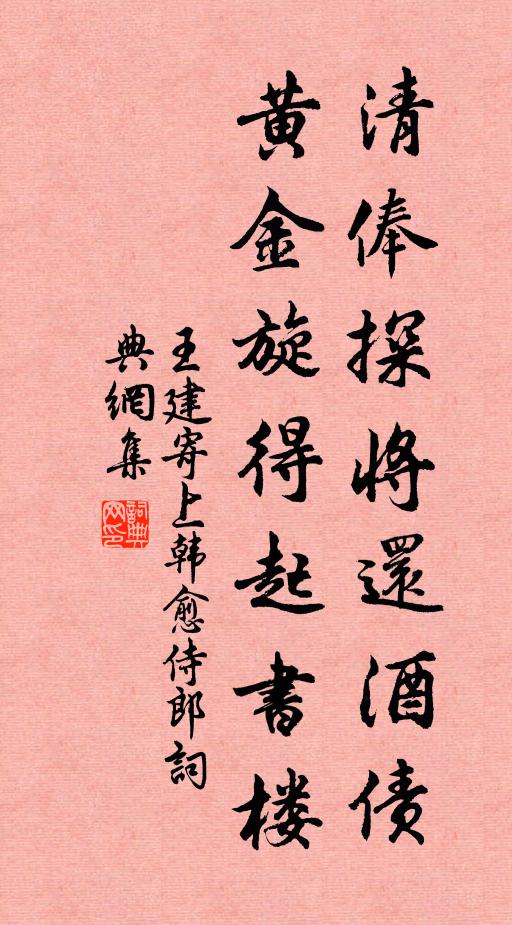 清俸探将還酒债
黄金旋得起書楼
王建寄上韩愈侍郎詞
典網集
詞典
网印